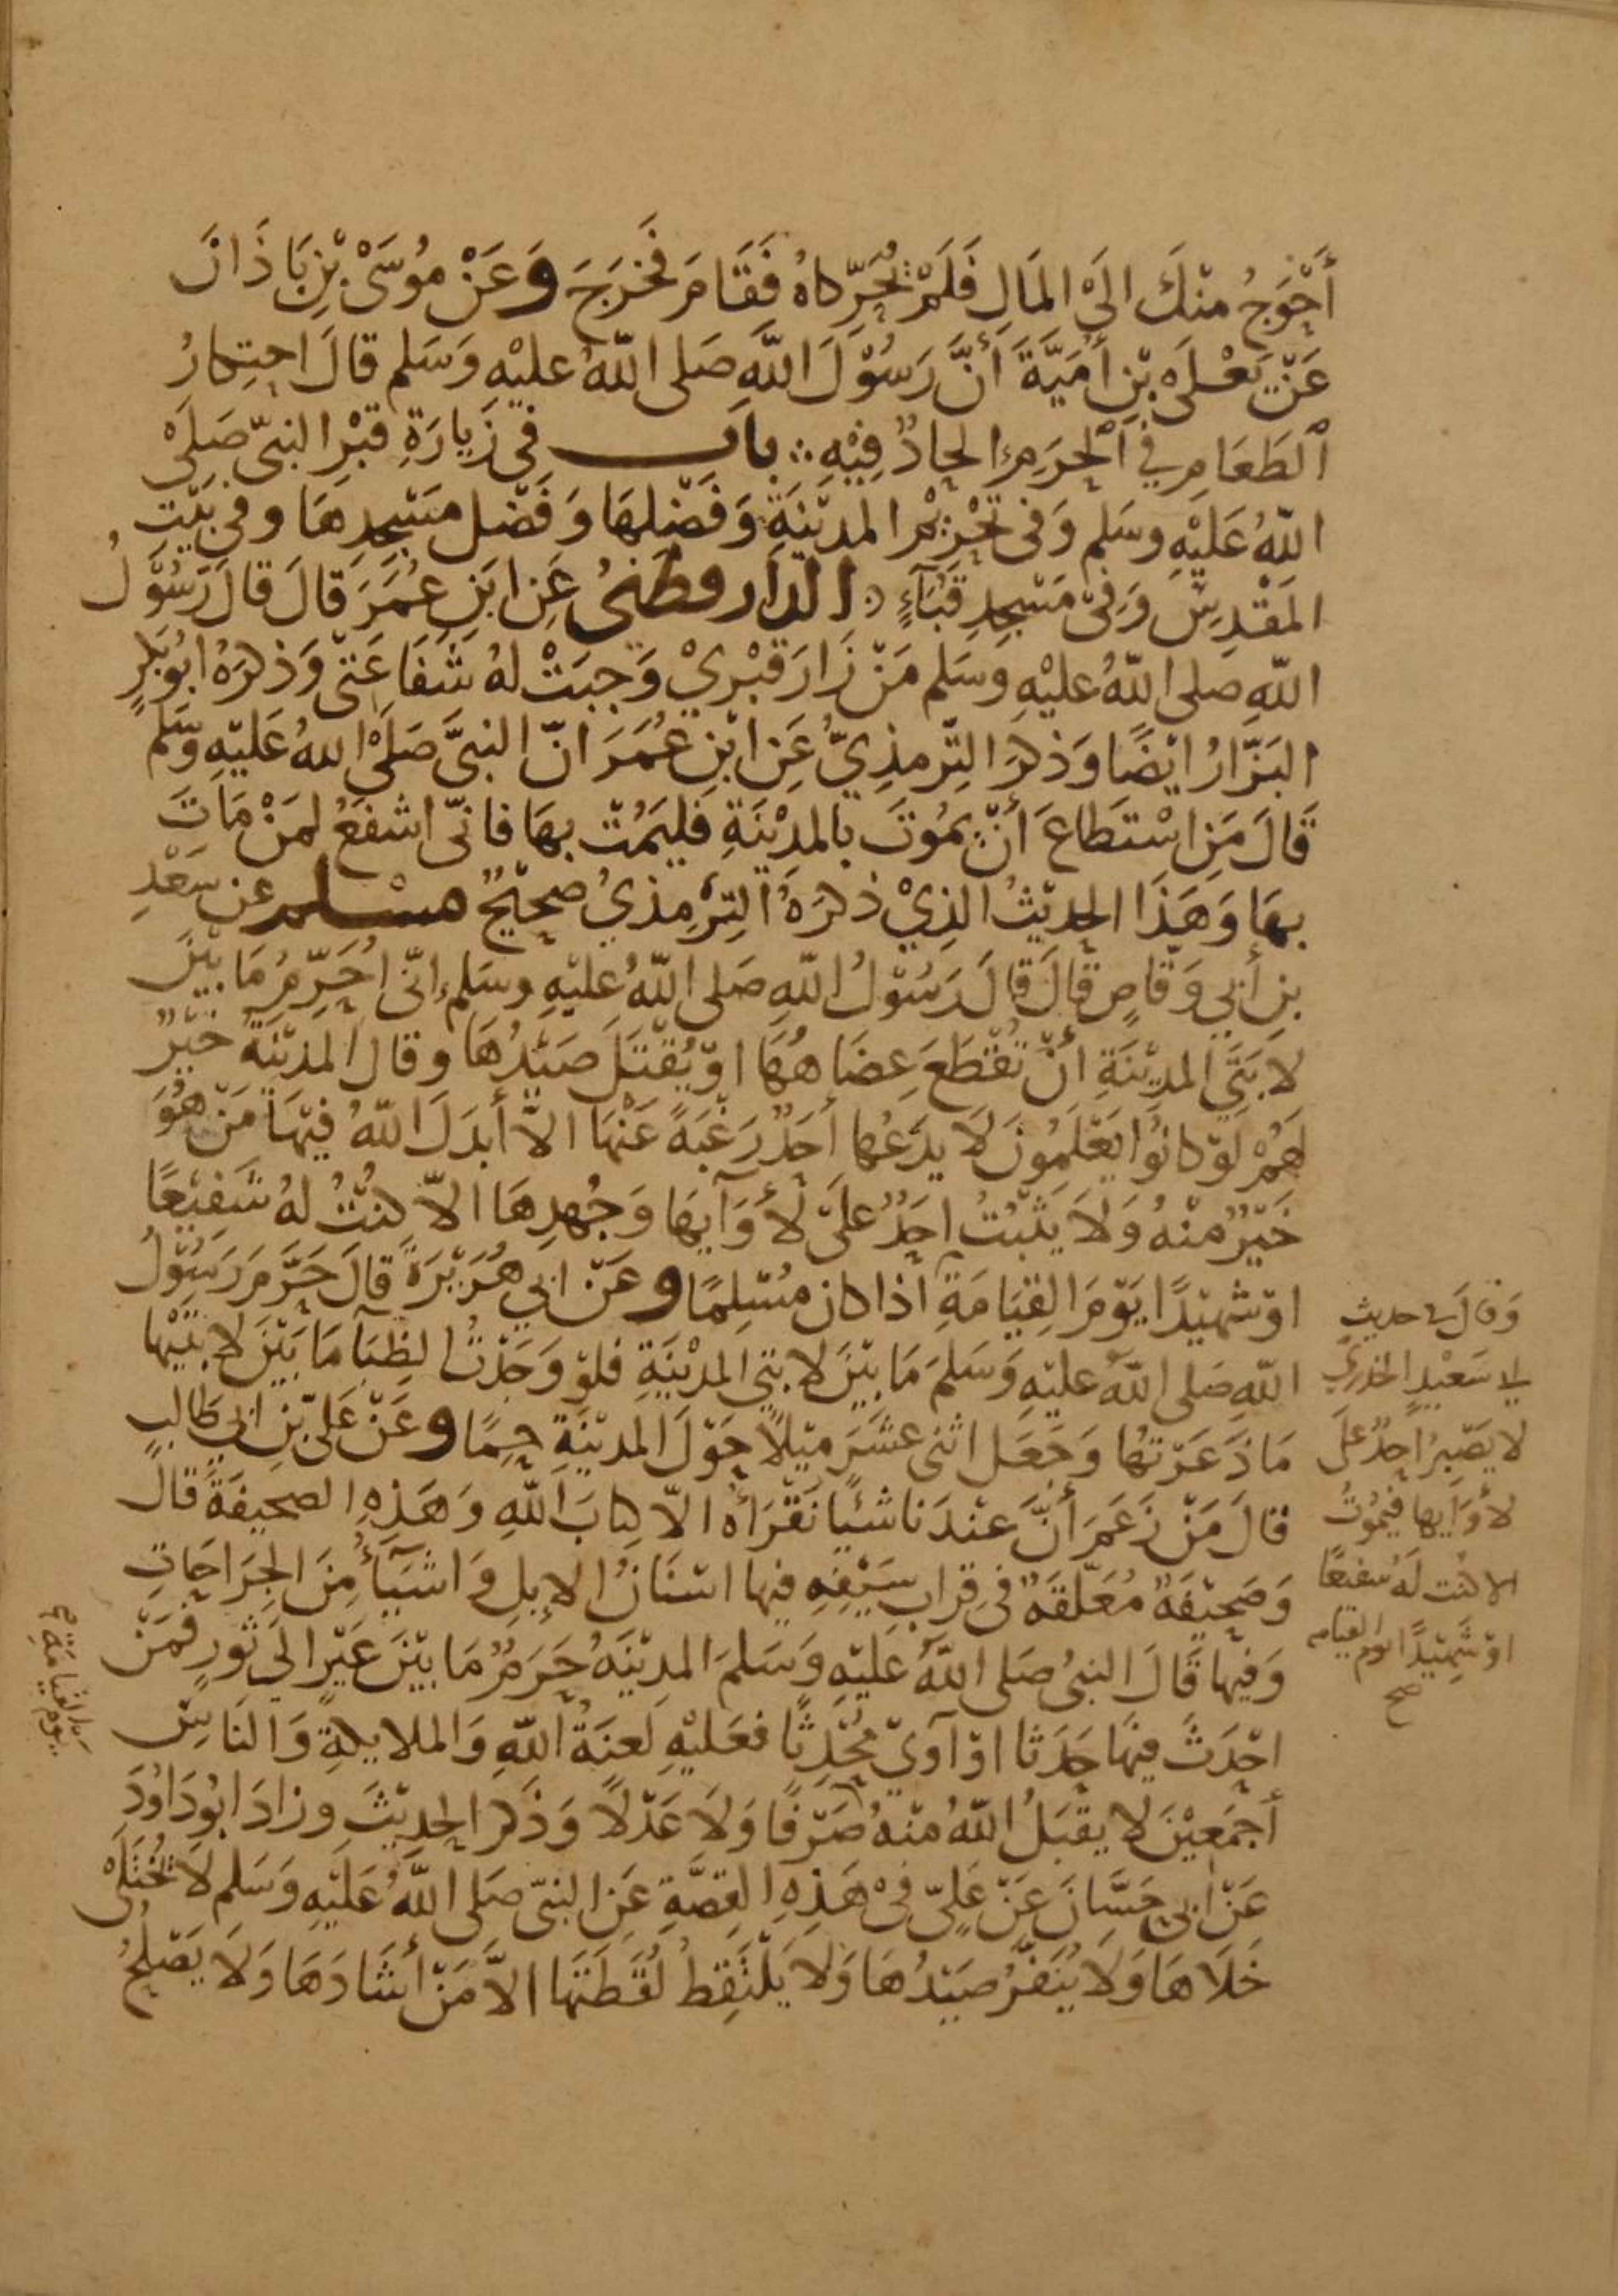 أَحْوَجُ مِنْكَ الَى المَالِ فَلَمْ يُحَرِّكاهُ فَقَامَ فَخَرَجَ وَعَنْ مُوسَى بْنِ بَاذَانَ
عَنْ يَعْلَى بْنِ أُمَيَّةَ أَنَّ رَسُوْلَ اللَّهِ صَلى اللّهُ عليْهِ وَسَلم قالَ احتِكارُ
ٱلطَعَامِ في ٱلْحَرَمِ إلحادٌ فِيْهِ ∴ بابـــ في زِيارَةِ قبْر النبىّ صَلى
اللّهُ عَلَيْهِ وسَلم وَفى تحْرِيْم المدِيْنَةِ وَفَضْلهَا وَفَضْل مَسْجِدِهَا وفي بَيْتِ
المَقْدِسِ وَفى مَسْجِدِ قبَآءٍ ∴ الدَار قطنىُ عَنِ ابْنِ عُمَرَ قالَ قالَ رَسُوْلُ
اللّهِ صلى اللّهُ عليْهِ وَسَلم مَنْ زَارَ قبْرِيْ وَجبَتْ لهُ شَفَاعَتى وَذكرَهُ ابُو بَكرٍ
البَزّارُ ايْضًا وَذكرَ التِرْمذِيُّ عَنِ ابْنِ عُمَرَ انّ النبىَّ صَلىْ اللهُ عَليْهِ وَسَلم
قَالَ مَنِ اسْتَطاعَ أَنْ يمُوتَ بالمدِيْنَةِ فَليَمُتْ بهَا فانىّ اشفَعُ لمَنْ مَاتَ
بهَا وَهَذَا الحدِيْثُ الذِيْ ذكرَهُ التِرْمِذيُ صَحِيْحٌ مسْلم عن سَعْدِ
بنِ أَبي وَقاصٍ قالَ قالَ رَسُوْلُ اللّهِ صَلى اللّهُ عليْهِ وسَلم إنىّ احَرِّمُ مَا بيْنَ
لابَتَىِ المدِيْنَةِ أنْ تُقْطَعَ عِضَاهُهَا اوْ يُقْتَلَ صَيْدُهَا وقال المدِيْنَةُ خيْرٌ
لهَمْ لوْ كانوُا يَعْلَمُونَ لَا يدَعُها أَحَدٌ رَغْبَةً عَنْهَا الاّ أَبدَلَ اللّهُ فيْهَا مَنْ هُوَ
خَيْرٌ منْهُ وَلَا يثْبُتُ احَدٌ علىَ لَأْوَآيهَا وَجُهدِهَا الاّ كنْتُ لهُ شَفِيْعًا
اوْ شهيْدًا يَوْمَ القِيَامَةِ اذا كان مُسْلِمًا وعَنْ ابي هُرَيْرَةَ قالَ حَرَّمَ رَسُوْلُ
اللّهِ صَلى اللّهُ عليْهِ وَسَلمَ مَا بيْنَ لابتيِ المدِيْنَةِ فلوْ وَجَدْتُ الظِبَآ مَا بَيْنَ لابتيْها
مَا ذَعَرْتها وَجَعَل اثنى عشَرَ ميْلاً حَوْلَ المدِيْنَةِ حِمًا وعَنْ عَلىّ بْنِ ابي طَالبٍ
قالَ مَنْ زعَمَ أَنَّ عنْدَنا شيْئًا نَقْرَأُهُ الاّ كِتابَ اللّهِ وَهَذِهِ الصَحيفَةَ قال
وَصَحِيْفَةٌ مُعَلّقَةٌ في قِرابِ سَيْفِهِ فيها اسْنَانُ الإبِلِ وَاشيَآءُ مِنَ الجرَاحَاتِ
وَفيها قَالَ النبىُ صَلى اللّهُ عَليْهِ وَسَلمَ المدِيْنَةُ حَرَمٌ مَا بيْنَ عَيْرٍ الىَ ثورٍ فمَنْ
احْدَثَ فيْهَا حَدَثا اوْ آوىَ مُحْدِثًا فعَليْهِ لعنَةُ اللّهِ وَالملايكةِ وَالنَاسِ
أجْمَعِيْنَ لا يقبَلُ اللّهُ منْهُ صَرْفًا وَلَا عَدْلًا وَذَكرَ الحدِيْثَ وزادَ ابُو دَاوُدَ
عَنْ ابى حَسَّانَ عَنْ عَلىّ فىْ هَذِهِ القصَّةِ عَنِ النبىّ صَلى اللّهُ عَليْهِ وَسَلم لَا يُختَلى
خَلَاهَا وَلَا يُنَفَّرُ صَيْدُهَا وَلَا يَلْتَقِطُ لُقَطَتَهَا الاَّ مَنْ أَشَادَهَا وَلَا يَصْلحُ
وَقالَ في حديثِ
ابي سَعْيدٍ الخدري
لا يَصْبرُ احدٌ على
لأوَايها فيَمُوْتُ
الا كنْت لهُ شفيعًا
اوْ شَهِيْدًا يوم القيامه
صح